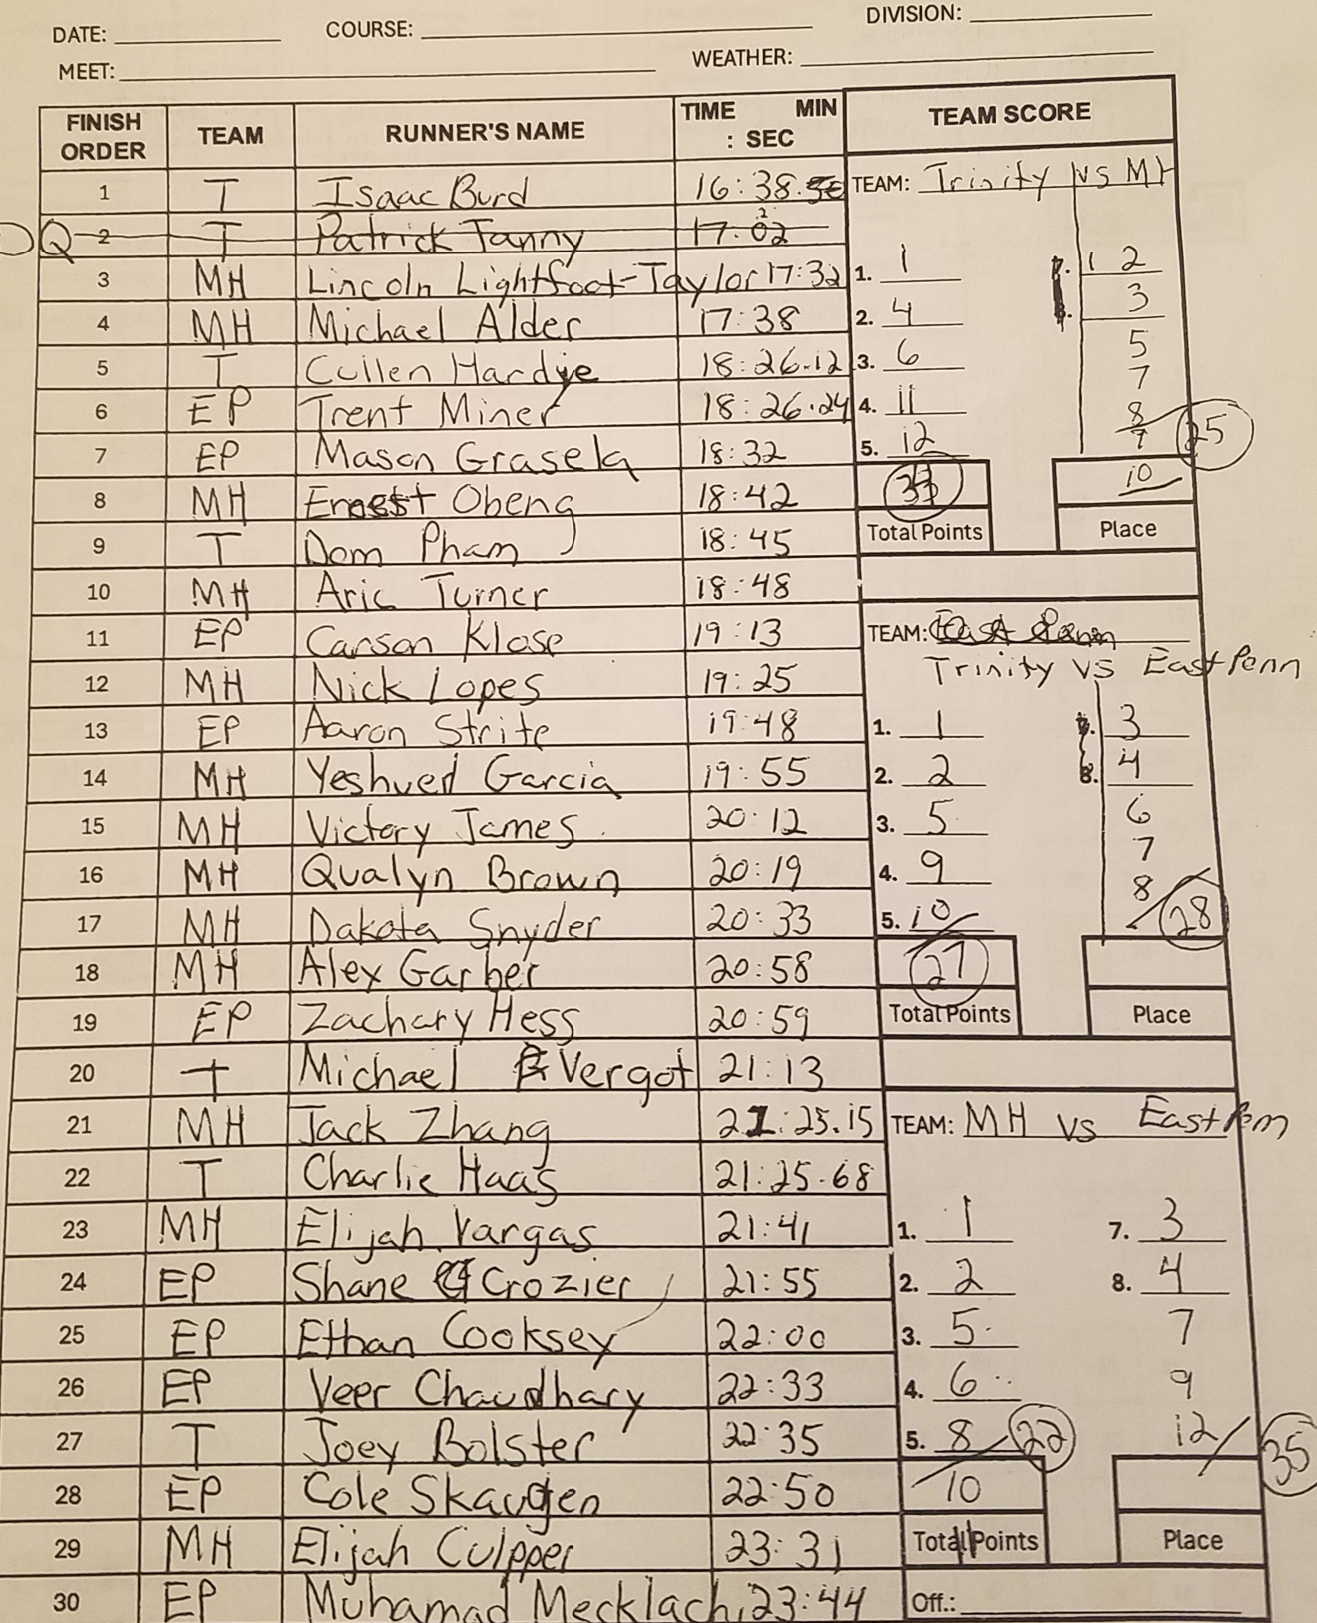 DATE: COURSE: DIVISION:
MEET: WEATHER:
FINISH ORDER TEAM RUNNER'S NAME TIME MIN : SEC
1 T Isaac Burd 16:38.
DQ 2 T Patrick Tanny 17:02
3 MH Lincoln Lightfoot-Taylor 17:32
4 MH Michael Alder 17:38
5 T Cullen Hardye 18:26.12
6 EP Trent Miner 18:26.24
7 EP Mason Grasela 18:32
8 MH Ernest Obeng 18:42
9 T Dom Pham 18:45
10 MH Aric Turner 18:48
11 EP Carson Klose 19:13
12 MH Nick Lopes 19:25
13 EP Aaron Strite 19:48
14 MH Yeshued Garcia 19:55
15 MH Victory James 20:12
16 MH Qualyn Brown 20:19
17 MH Dakota Snyder 20:33
18 MH Alex Garber 20:58
19 EP Zachary Hess 20:59
20 T Michael Vergot 21:13
21 MH Jack Zhang 21:25.15
22 T Charlie Haas 21:25.68
23 MH Elijah Vargas 21:41
24 EP Shane Crozier 21:55
25 EP Ethan Cooksey 22:00
26 EP Veer Chaudhary 22:33
27 T Joey Bolster 22:35
28 EP Cole Skaugen 22:50
29 MH Elijah Culpper 23:31
30 EP Muhamad Mecklach 23:44
TEAM SCORE
TEAM: Trinity vs MH
1. 1 2
2. 4 3
3. 6 5
7
4. 11 8
5. 12 9 25
33 10
Total Points Place
TEAM: East Penn
Trinity vs East Penn
1. 1 3
2. 2 8. 4
3. 5 6
4. 9 7
5. 10 8
27 28
Total Points Place
TEAM: MH vs East Penn
1. 1 7. 3
2. 2 8. 4
3. 5 7
4. 6 9
5. 8 22 12 35
10
Total Points Place
Off.: